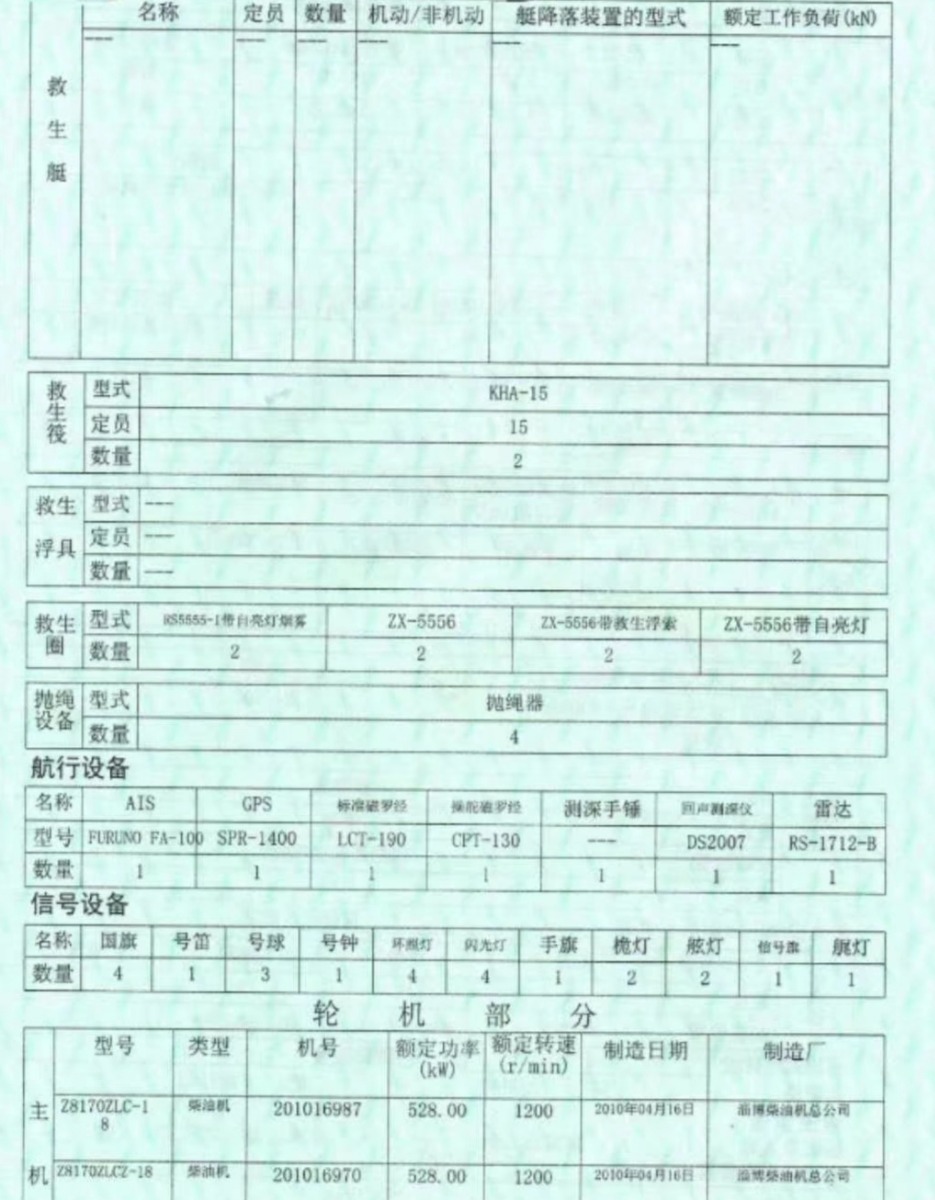 名称 定员 数量 机动/非机动 艇降落装置的型式 额定工作负荷(kN)
--- --- --- --- --- ---
救生艇
救生筏 型式 KHA-15
定员 15
数量 2
救生浮具 型式 ---
定员 ---
数量 ---
救生圈 型式 RS5555-1带自亮灯烟雾 ZX-5556 ZX-5556带救生浮索 ZX-5556带自亮灯
数量 2 2 2 2
抛绳设备 型式 抛绳器
数量 4
航行设备
名称 AIS GPS 标准磁罗经 操舵磁罗经 测深手锤 回声测深仪 雷达
型号 FURUNO FA-100 SPR-1400 LCT-190 CPT-130 --- DS2007 RS-1712-B
数量 1 1 1 1 1 1 1
信号设备
名称 国旗 号笛 号球 号钟 环照灯 闪光灯 手旗 桅灯 舷灯 信号旗 艉灯
数量 4 1 3 1 4 4 1 2 2 1 1
轮机部分
型号 类型 机号 额定功率(kW) 额定转速(r/min) 制造日期 制造厂
主机 Z8170ZLC-18 柴油机 201016987 528.00 1200 2010年04月16日 淄博柴油机总公司
Z8170ZLCZ-18 柴油机 201016970 528.00 1200 2010年04月16日 淄博柴油机总公司